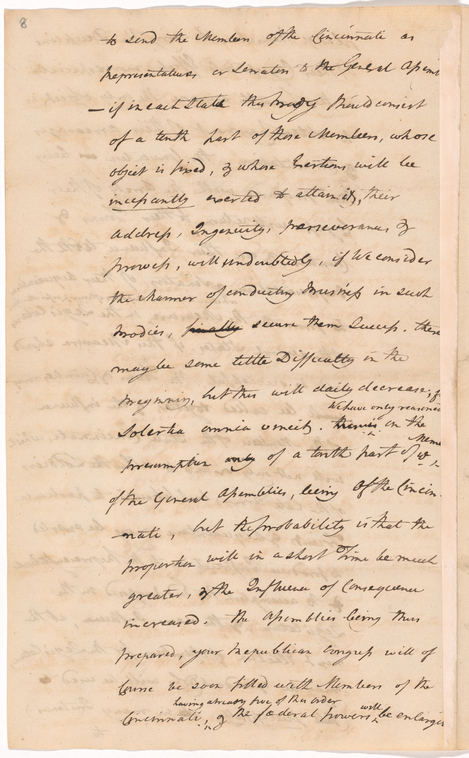 8
to send the Members of the Cincinnati as
Representatives or Senators to the General Assem
— if in each State this Body should consist
of a tenth part of those Members, whose
object is fixed, & whose Exertions will be
incessantly exerted to attain it, their
Address, Ingenuity, perseverance &
prowess, will undoubtedly, if We consider
the Manner of conducting Business in such
Bodies, finally secure them Success. there
may be some little Difficulty in the
Beginning, but this will daily decrease, &
We have only reasoned
Solertia omnia vincit. on the
Mem
presumption only of a tenth part of ye
of the General Assemblies, being of the Cincin-
nati, but the probability is that the
proportion will in a short Time be much
greater, & the Influence of Consequence
increased. the Assemblies being thus
prepared, your Republican Congress will of
Course be soon filled with Members of the
having already five of this order will
Cincinnati, & the fœderal powers be enlarged